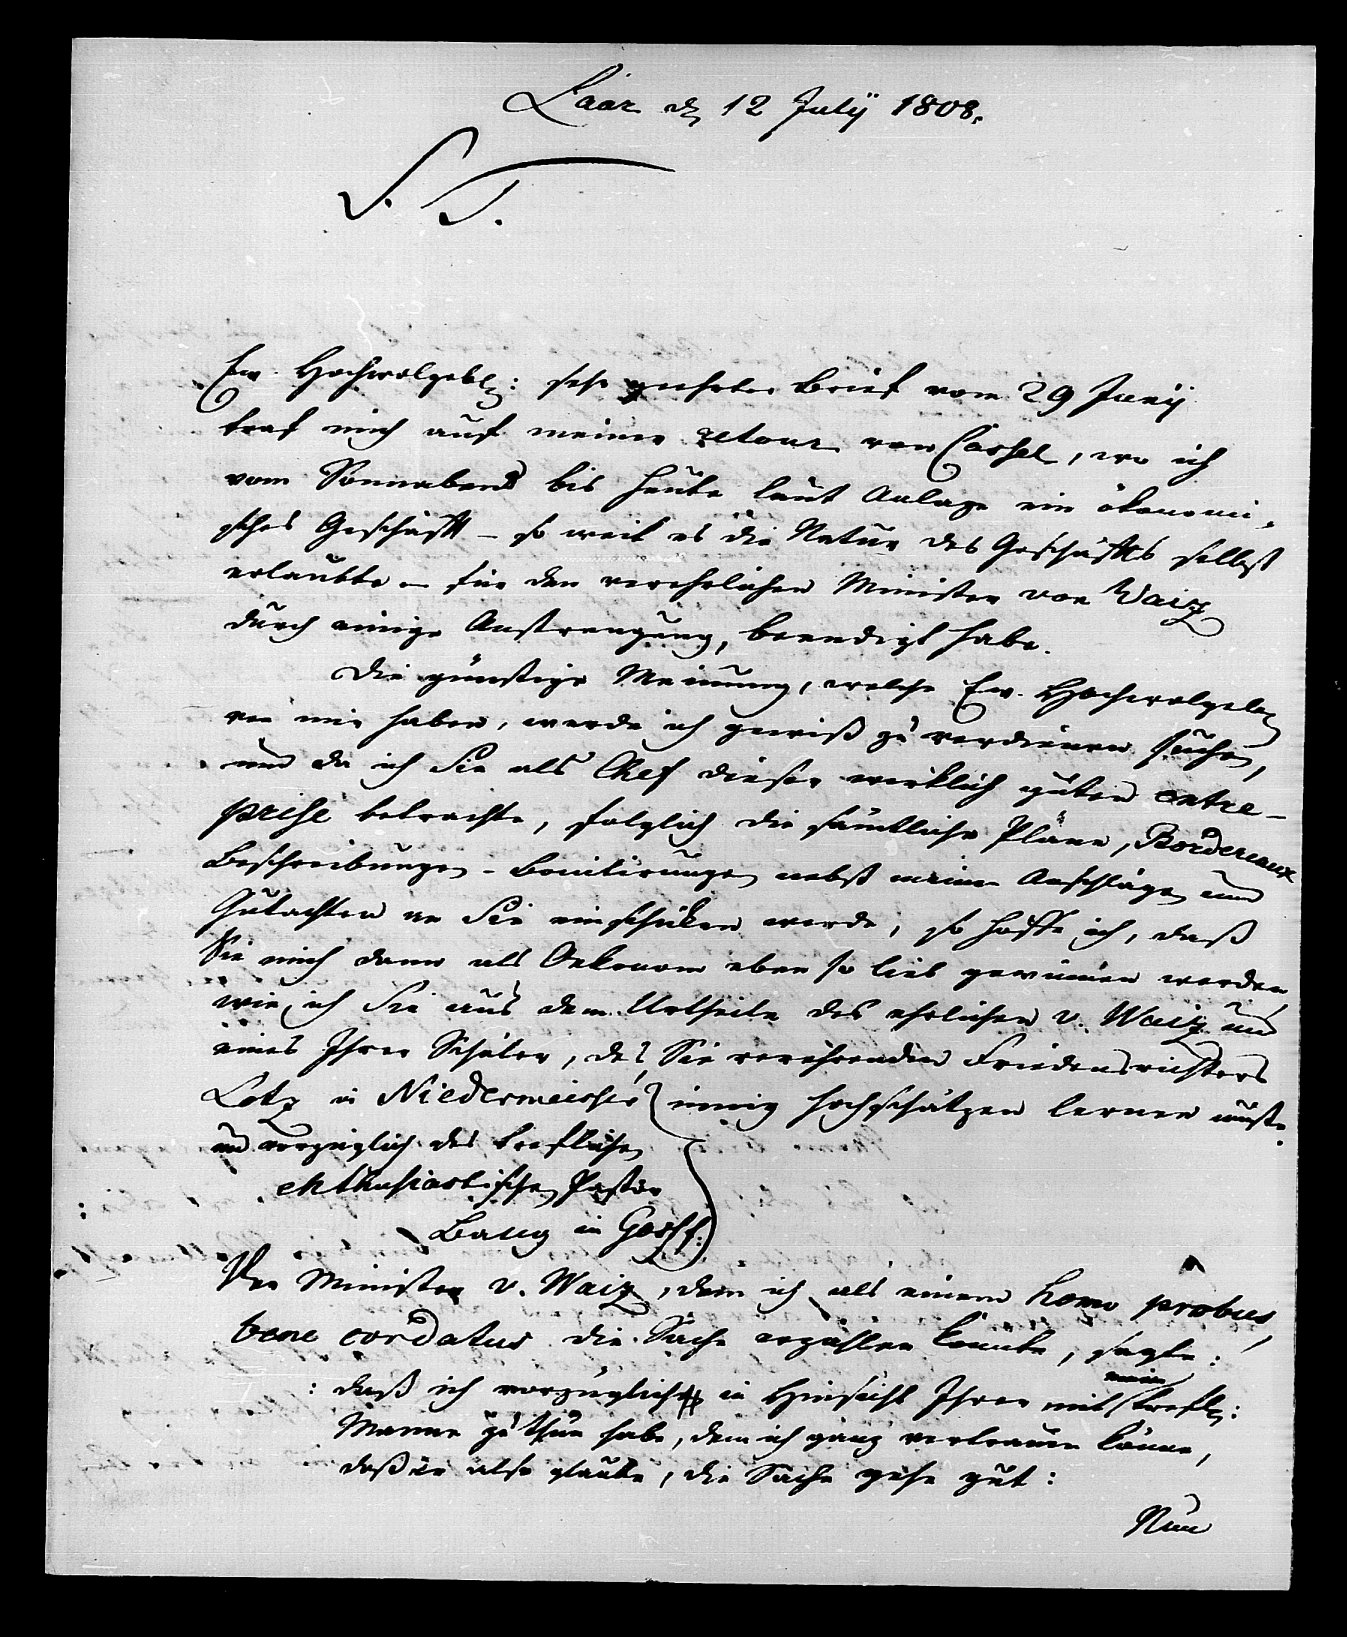 Laar d 12 July 1808.
S. T.
Ew. Hochwolgeb: sehr geehrter Brief vom 29 Juny
traf mich auf meiner retour von Cassel, wo ich
vom Sonnabend bis heute laut Anlage ein ökonomi-
sches Geschäft – so weit es die Natur des Geschäfts selbst
erlaubte – für den verehrlichen Minister von Waiz
durch einige Anstrengung, beendigt habe.
Die günstige Meinung, welche Ew. Hochwolgeb
von mir haben, werde ich gewiß zu verdienen suchen,
und da ich Sie als Chef dieser wirklich guten entre-
prise betrachte, folglich die sämtliche Pläne, Bordereaux
Beschreibungen – Bonitirungen nebst meinen Anschlägen und
Gutachten an Sie einschicken werde, so hoffe ich, daß
Sie mich dann als Oekonom eben so lieb gewinnen werden,
wie ich Sie aus dem Urtheile des ehrlichen v. Waiz und
eines Ihrer Schüler, des Sie verehrenden Friedensrichters
Lotz in Niedermeisser innig hochschätzen lernen muste.
und vorzüglich des treflichen
enthusiastischen Pastor
Bang in Gosf:
Der Minister v. Waiz, dem ich als einem homo probus,
bene cordatus die Sache erzählen konnte, sagte:
: daß ich vorzüglich in Hinsicht Ihrer mit einem trefl:
Manne zu thun habe, dem ich ganz vertrauen könne,
daß er also glaube, die Sache gehe gut:
Nun